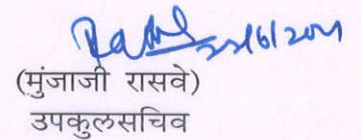 22/6/2021
(मुंजाजी रासवे)
उपकुलसचिव